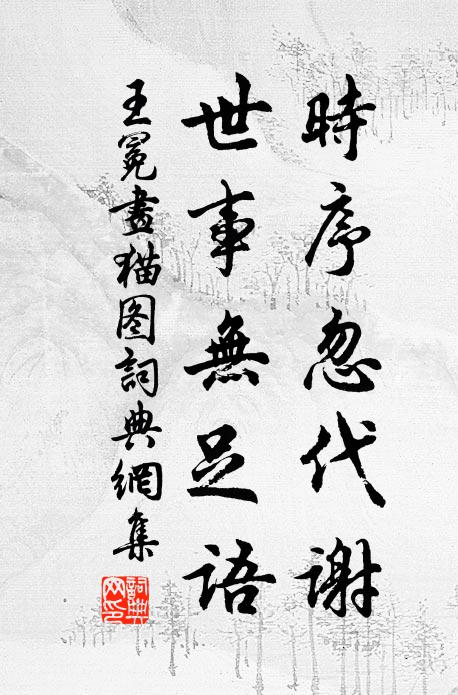 時序忽代謝
世事無足語
王冕畫猫图詞典網集
詞典